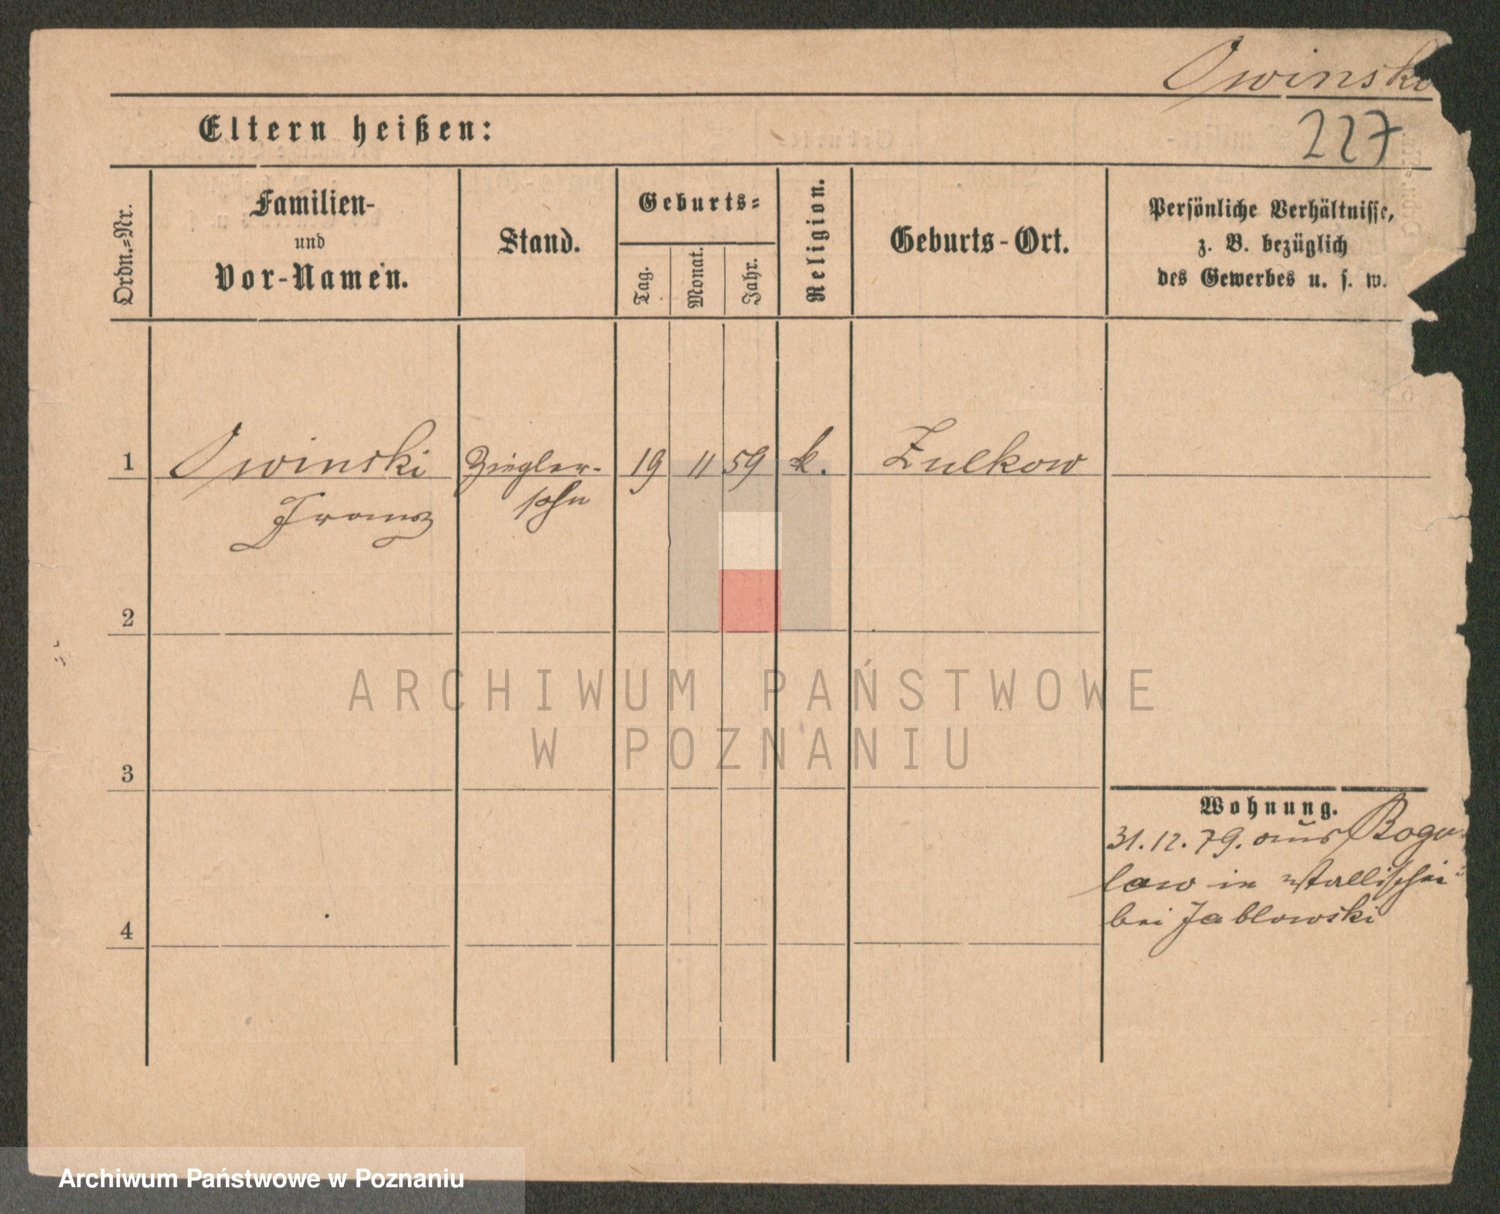 Owinski
227
Eltern heißen:
Ordn.=Nr.
Familien-
und
Vor-Namen.
Stand.
Geburts=
Tag.
Monat.
Jahr.
Religion.
Geburts-Ort.
Persönliche Verhältnisse,
z. B. bezüglich
des Gewerbes u. s. w.
1
Owinski
Franz
Ziegler-
sohn
19
11
59
k.
Zulkow
2
3
4
Wohnung.
31.12.79. aus Bogu-
law in Wallischei
bei Jablowski
ARCHIWUM PAŃSTWOWE
W POZNANIU
Archiwum Państwowe w Poznaniu